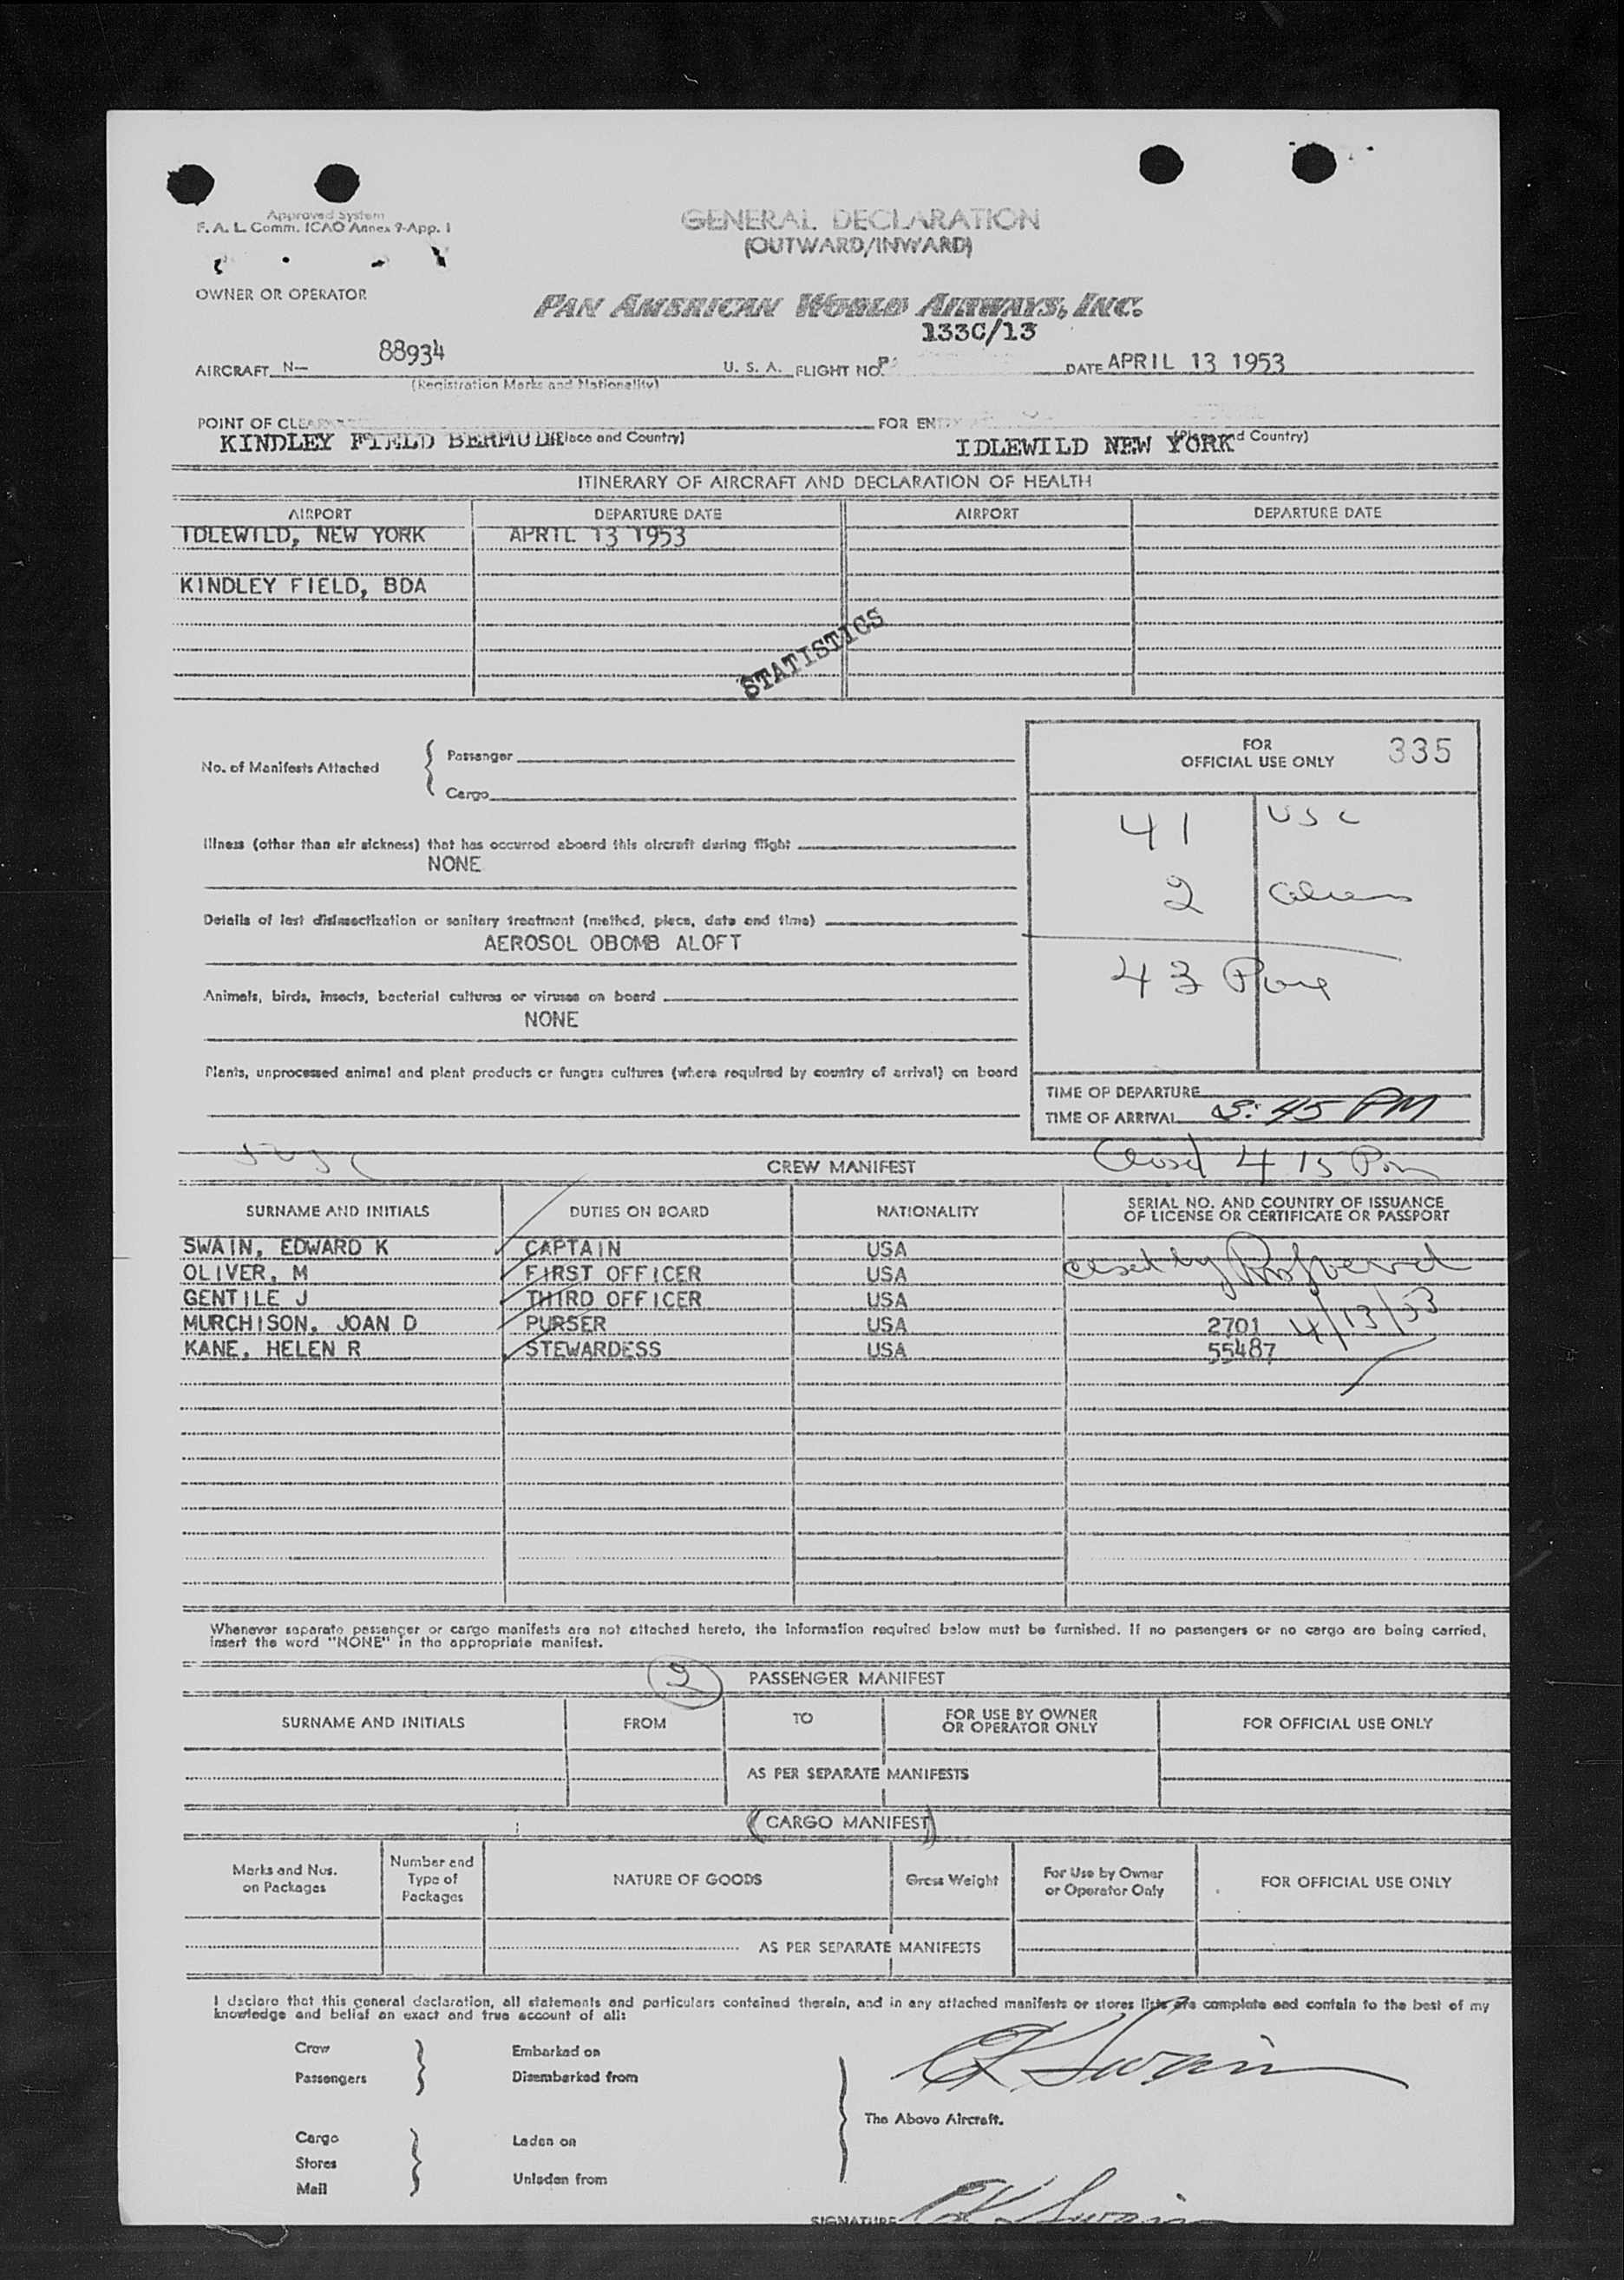 Approved System
F. A. L. Comm. ICAO Annex 9-App. 1
GENERAL DECLARATION
(OUTWARD/INWARD)
OWNER OR OPERATOR
PAN AMERICAN WORLD AIRWAYS, INC.
133C/13
AIRCRAFT N— 88934 U. S. A. FLIGHT NO. DATE APRIL 13 1953
(Registration Marks and Nationality)
POINT OF FOR
KINDLEY FIELD BERMUDA and Country) IDLEWILD NEW YORK Country)
ITINERARY OF AIRCRAFT AND DECLARATION OF HEALTH
AIRPORT DEPARTURE DATE AIRPORT DEPARTURE DATE
IDLEWILD, NEW YORK APRIL 13 1953
KINDLEY FIELD, BDA
STATISTICS
No. of Manifests Attached { Passenger
Cargo
FOR
OFFICIAL USE ONLY 335
41 USC
2 aliens
43
Illness (other than air sickness) that has occurred aboard this aircraft during flight
NONE
Details of last disinsectization or sanitary treatment (method, place, date and time)
AEROSOL OBOMB ALOFT
Animals, birds, insects, bacterial cultures or viruses on board
NONE
Plants, unprocessed animal and plant products or fungus cultures (where required by country of arrival) on board
TIME OF DEPARTURE
TIME OF ARRIVAL 3:45 PM
Closed 4 15 Pm
CREW MANIFEST
SURNAME AND INITIALS DUTIES ON BOARD NATIONALITY SERIAL NO. AND COUNTRY OF ISSUANCE
OF LICENSE OR CERTIFICATE OR PASSPORT
SWAIN, EDWARD K CAPTAIN USA
OLIVER, M FIRST OFFICER USA
GENTILE J THIRD OFFICER USA
MURCHISON, JOAN D PURSER USA 2701 4/13/53
KANE, HELEN R STEWARDESS USA 55487
Whenever separate passenger or cargo manifests are not attached hereto, the information required below must be furnished. If no passengers or no cargo are being carried,
insert the word "NONE" in the appropriate manifest.
2 PASSENGER MANIFEST
SURNAME AND INITIALS FROM TO FOR USE BY OWNER
OR OPERATOR ONLY FOR OFFICIAL USE ONLY
AS PER SEPARATE MANIFESTS
(CARGO MANIFEST)
Marks and Nos.
on Packages Number and
Type of
Packages NATURE OF GOODS Gross Weight For Use by Owner
or Operator Only FOR OFFICIAL USE ONLY
AS PER SEPARATE MANIFESTS
I declare that this general declaration, all statements and particulars contained therein, and in any attached manifests or stores lists are complete and contain to the best of my
knowledge and belief an exact and true account of all:
Crew Embarked on
Passengers Disembarked from
EK Swain
The Above Aircraft.
Cargo Laden on
Stores
Mail Unladen from
SIGNATURE EK Swain